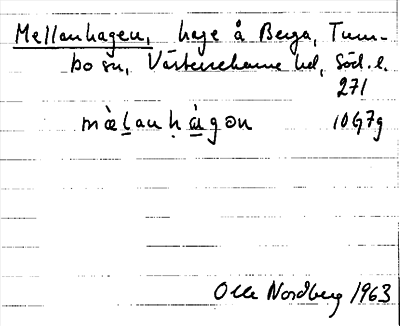 Mellanhagen, hage å Berga, Tum-
bo sn, Västerrekarne hd, Söd. l.
271
mæ̀lanhàgən 10G7g
Olle Nordberg 1963